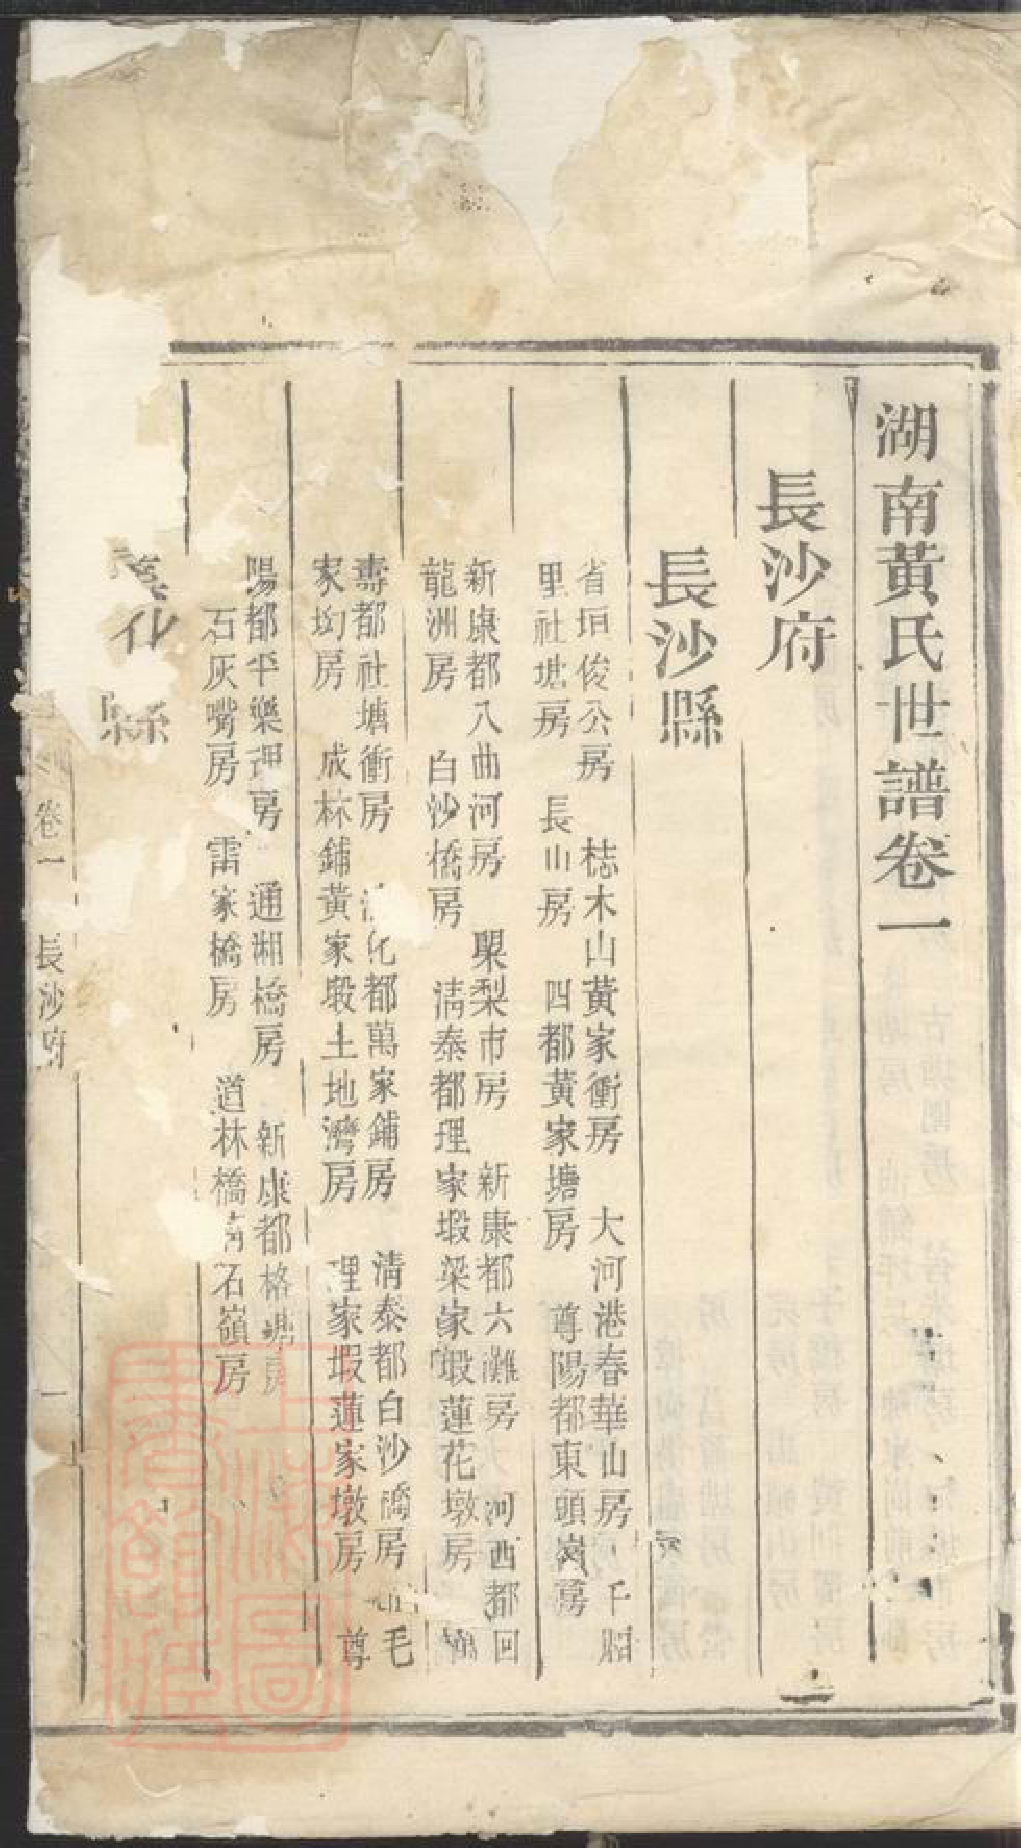 湖南黃氏世譜卷一
長沙府
長沙縣
省垣俊公房 梽木山黃家衝房 大河港春華山房 千
里社塘房 長山房 四都黃家塘房 尊陽都東頭崗房
新康都八曲河房 㮚梨市房 新康都六灘房 河西都回
龍洲房 白沙橋房 清泰都理家塅梁家塅蓮花墩房
壽都社塘衝房 化都萬家鋪房 清泰都白沙橋房 毛
家坳房 成林鋪黃家塅土地灣房 理家塅蓮家墩房 尊
陽都平樂房 通湘橋房 新康都格塘房
石灰嘴房 雷家橋房 道林橋石嶺房
化縣
卷一 長沙府 一
上海圖書館藏